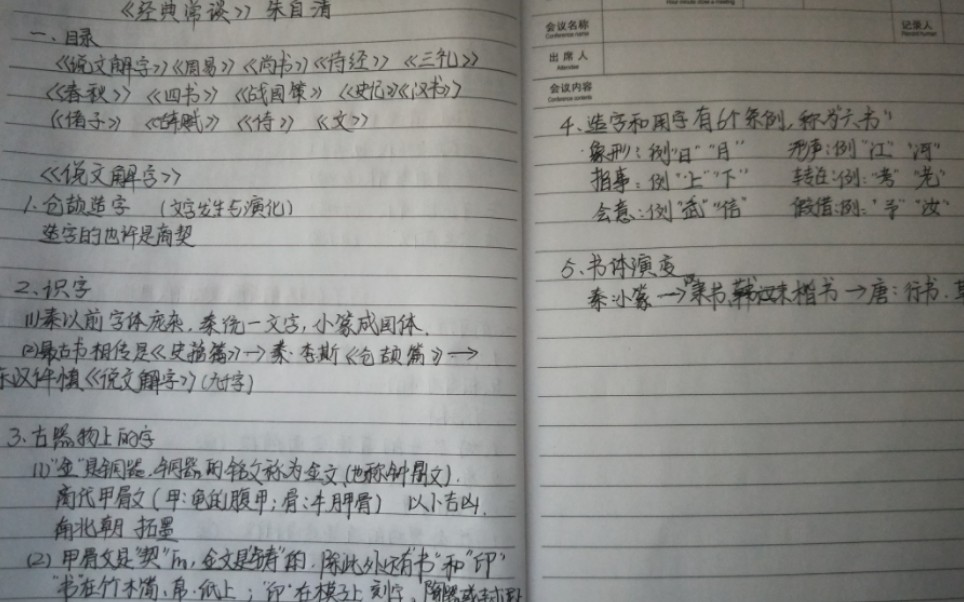 《经典常谈》 朱自清
一、目录
《说文解字》《周易》《尚书》《诗经》《三礼》
《春秋》《四书》《战国策》《史记》《汉书》
《诸子》《辞赋》《诗》《文》
《说文解字》
1.仓颉造字 (文字发生与演化)
造字的也许是商契
2、识字
(1)秦以前字体庞杂,秦统一文字,小篆成国体.
(2)最古书相传是《史籀篇》→秦·李斯《仓颉篇》→
东汉许慎《说文解字》(九千字)
3、古器物上的字
(1)"金"是铜器.铜器的铭文称为金文(也称钟鼎文).
商代甲骨文(甲:龟的腹甲;骨:牛胛骨) 以卜吉凶.
南北朝 拓墨
(2) 甲骨文是"契"的,金文是"铸"的.除此外还有"书"和"印"
"书"在竹木简、帛、纸上;"印"在模子上刻字,陶器或封
会议名称
Conference name
记录人
出席人
Attendee
会议内容
Conference contents
4、造字和用字有6个条例,称为"六书"
象形:例"日""月" 形声:例"江""河"
指事:例"上""下" 转注:例:"考""老"
会意:例"武""信" 假借:例:"令""汝"
5、书体演变
秦小篆→隶书、汉末楷书→唐:行书.草